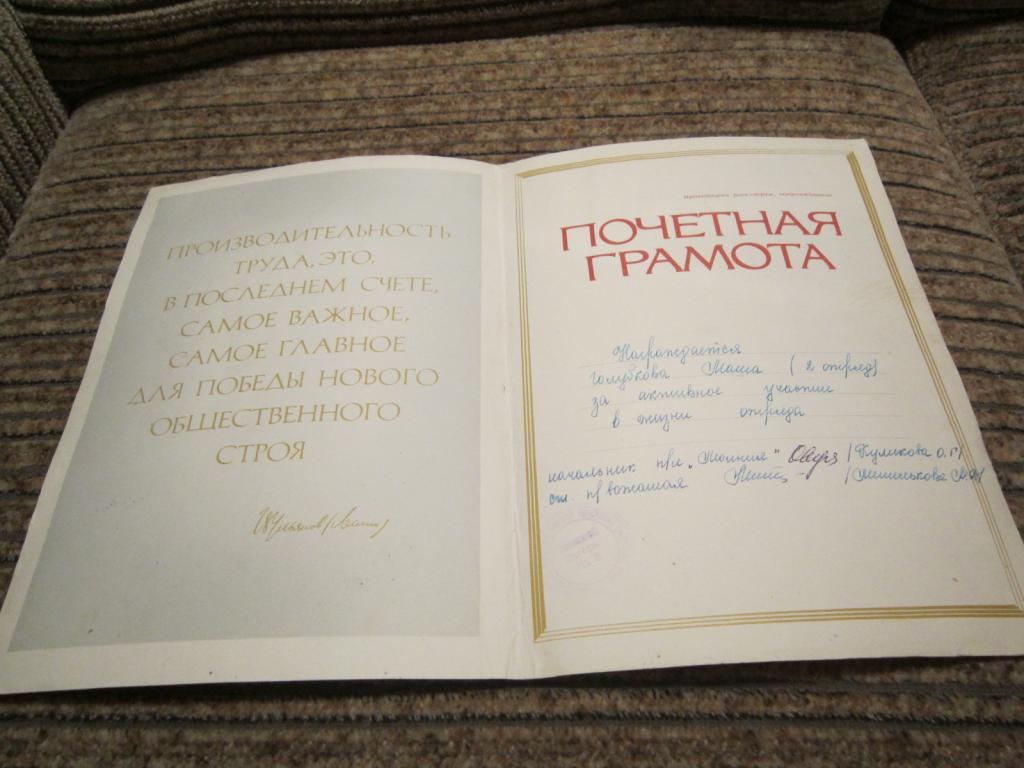 ПРОИЗВОДИТЕЛЬНОСТЬ
ТРУДА, ЭТО,
В ПОСЛЕДНЕМ СЧЕТЕ,
САМОЕ ВАЖНОЕ,
САМОЕ ГЛАВНОЕ
ДЛЯ ПОБЕДЫ НОВОГО
ОБЩЕСТВЕННОГО
СТРОЯ
Пролетарии всех стран, соединяйтесь!
ПОЧЕТНАЯ
ГРАМОТА
Награждается
Голубкова Маша (2 отряд)
за активное участие
в жизни отряда
начальник п/л „Молния" /Куликова О.Г/
ст. п/вожатая